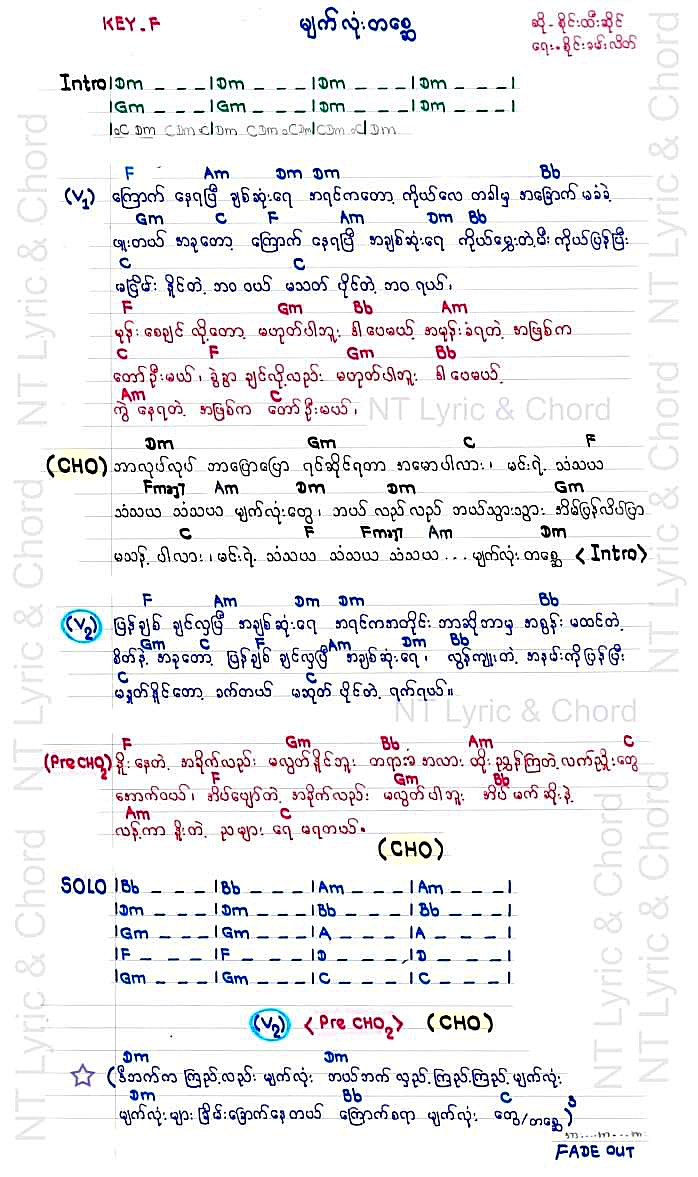 KEY.F
မျက်လုံးတစ္ဆေ
ဆို - စိုင်းထီးဆိုင်
ရေး - စိုင်းခမ်းလိတ်
Intro |Dm _ _ _ |Dm _ _ _ |Dm _ _ _ |Dm _ _ _ |
|Gm _ _ _ |Gm _ _ _ |Dm _ _ _ |Dm _ _ _ |
F Am Dm Dm Bb
(V1) ကြောက် နေရပြီ ချစ်ဆုံးရေ အရင်ကတော့ ကိုယ်လေ တခါမှ အခြောက် မခံခဲ့
Gm C F Am Dm Bb
ဖူးတယ် အခုတော့ ကြောက် နေရပြီ အချစ်ဆုံးရေ ကိုယ်မွှေးတဲ့မီး ကိုယ်ပြန်ငြီး
C C
မငြိမ်း နိုင်တဲ့ ဘဝ ဝယ် မသတ် ပိုင်တဲ့ ဘဝ ရယ်၊
F Gm Bb Am
မုန်း စေချင် လို့တော့ မဟုတ်ပါဘူး ဒါပေမယ့် အမုန်းခံရတဲ့ အဖြစ်က
C F Gm Bb
တော်ဦးမယ်၊ ခွဲခွာ ချင်လို့လည်း မဟုတ်ပါဘူး ဒါပေမယ့်
Am C
ကွဲ နေရတဲ့ အဖြစ်က တော်ဦးမယ်၊
NT Lyric & Chord
Dm Gm C F
(CHO) ဘာလုပ်လုပ် ဘာပြောပြော ရင်ဆိုင်ရတာ အမောပါလား၊ မင်းရဲ့ သံသယ
Fmaj7 Am Dm Dm Gm
သံသယ သံသယ မျက်လုံးတွေ၊ ဘယ် လည်လည် ဘယ်သွားသွား အိမ်ပြန်လိပ်ပြာ
C F Fmaj7 Am Dm
မသန့် ပါလား၊ မင်းရဲ့ သံသယ သံသယ သံသယ ... မျက်လုံး တစ္ဆေ <Intro>
F Am Dm Dm Bb
(V2) ပြန်ချစ် ချင်လှပြီ အချစ်ဆုံးရေ အရင်ကအတိုင်း ဘာဆိုဘာမှ အစွန်း မထင်တဲ့
Gm C F Am Dm Bb
စိတ်နဲ့ အခုတော့ ပြန်ချစ် ချင်လှပြီ အချစ်ဆုံးရေ၊ လွန်ကျူးတဲ့ အနမ်းကိုပြန်ငြီး
C C
မနှုတ်နိုင်တော့ ခက်တယ် မဆုတ် ပိုင်တဲ့ ရက်ရယ်။
NT Lyric & Chord
F Gm Bb Am C
(Pre CHO2) နိုး နေတဲ့ အခိုက်လည်း မလွတ်နိုင်ဘူး တရားခံ အလား ထိုး ညွှန်ကြတဲ့ လက်ညှိုးတွေ
F Gm Bb
အောက်ဝယ်၊ အိပ်ပျော်တဲ့ အခိုက်လည်း မလွတ်ပါဘူး အိပ် မက် ဆိုးနဲ့
Am C
လန့်ကာ နိုးတဲ့ ညများ ရေ မရတယ်။
(CHO)
SOLO |Bb _ _ _ |Bb _ _ _ |Am _ _ _ |Am _ _ _ |
|Dm _ _ _ |Dm _ _ _ |Bb _ _ _ |Bb _ _ _ |
|Gm _ _ _ |Gm _ _ _ |A _ _ _ |A _ _ _ |
|F _ _ _ |F _ _ _ |D _ _ _ |D _ _ _ |
|Gm _ _ _ |Gm _ _ _ |C _ _ _ |C _ _ _ |
(V2) <Pre CHO2> (CHO)
Dm Dm
(ဒီဘက်က ကြည့်လည်း မျက်လုံး ဘယ်ဘက် လှည့်ကြည့်ကြည့် မျက်လုံး
Dm Bb C
မျက်လုံးများ ခြိမ်းခြောက်နေတယ် ကြောက်စရာ မျက်လုံး တွေ/တစ္ဆေ)3
FADE OUT
NT Lyric & Chord
NT Lyric & Chord
NT Lyric & Chord
NT Lyric & Chord
NT Lyric & Chord
NT Lyric & Chord
NT Lyric & Chord